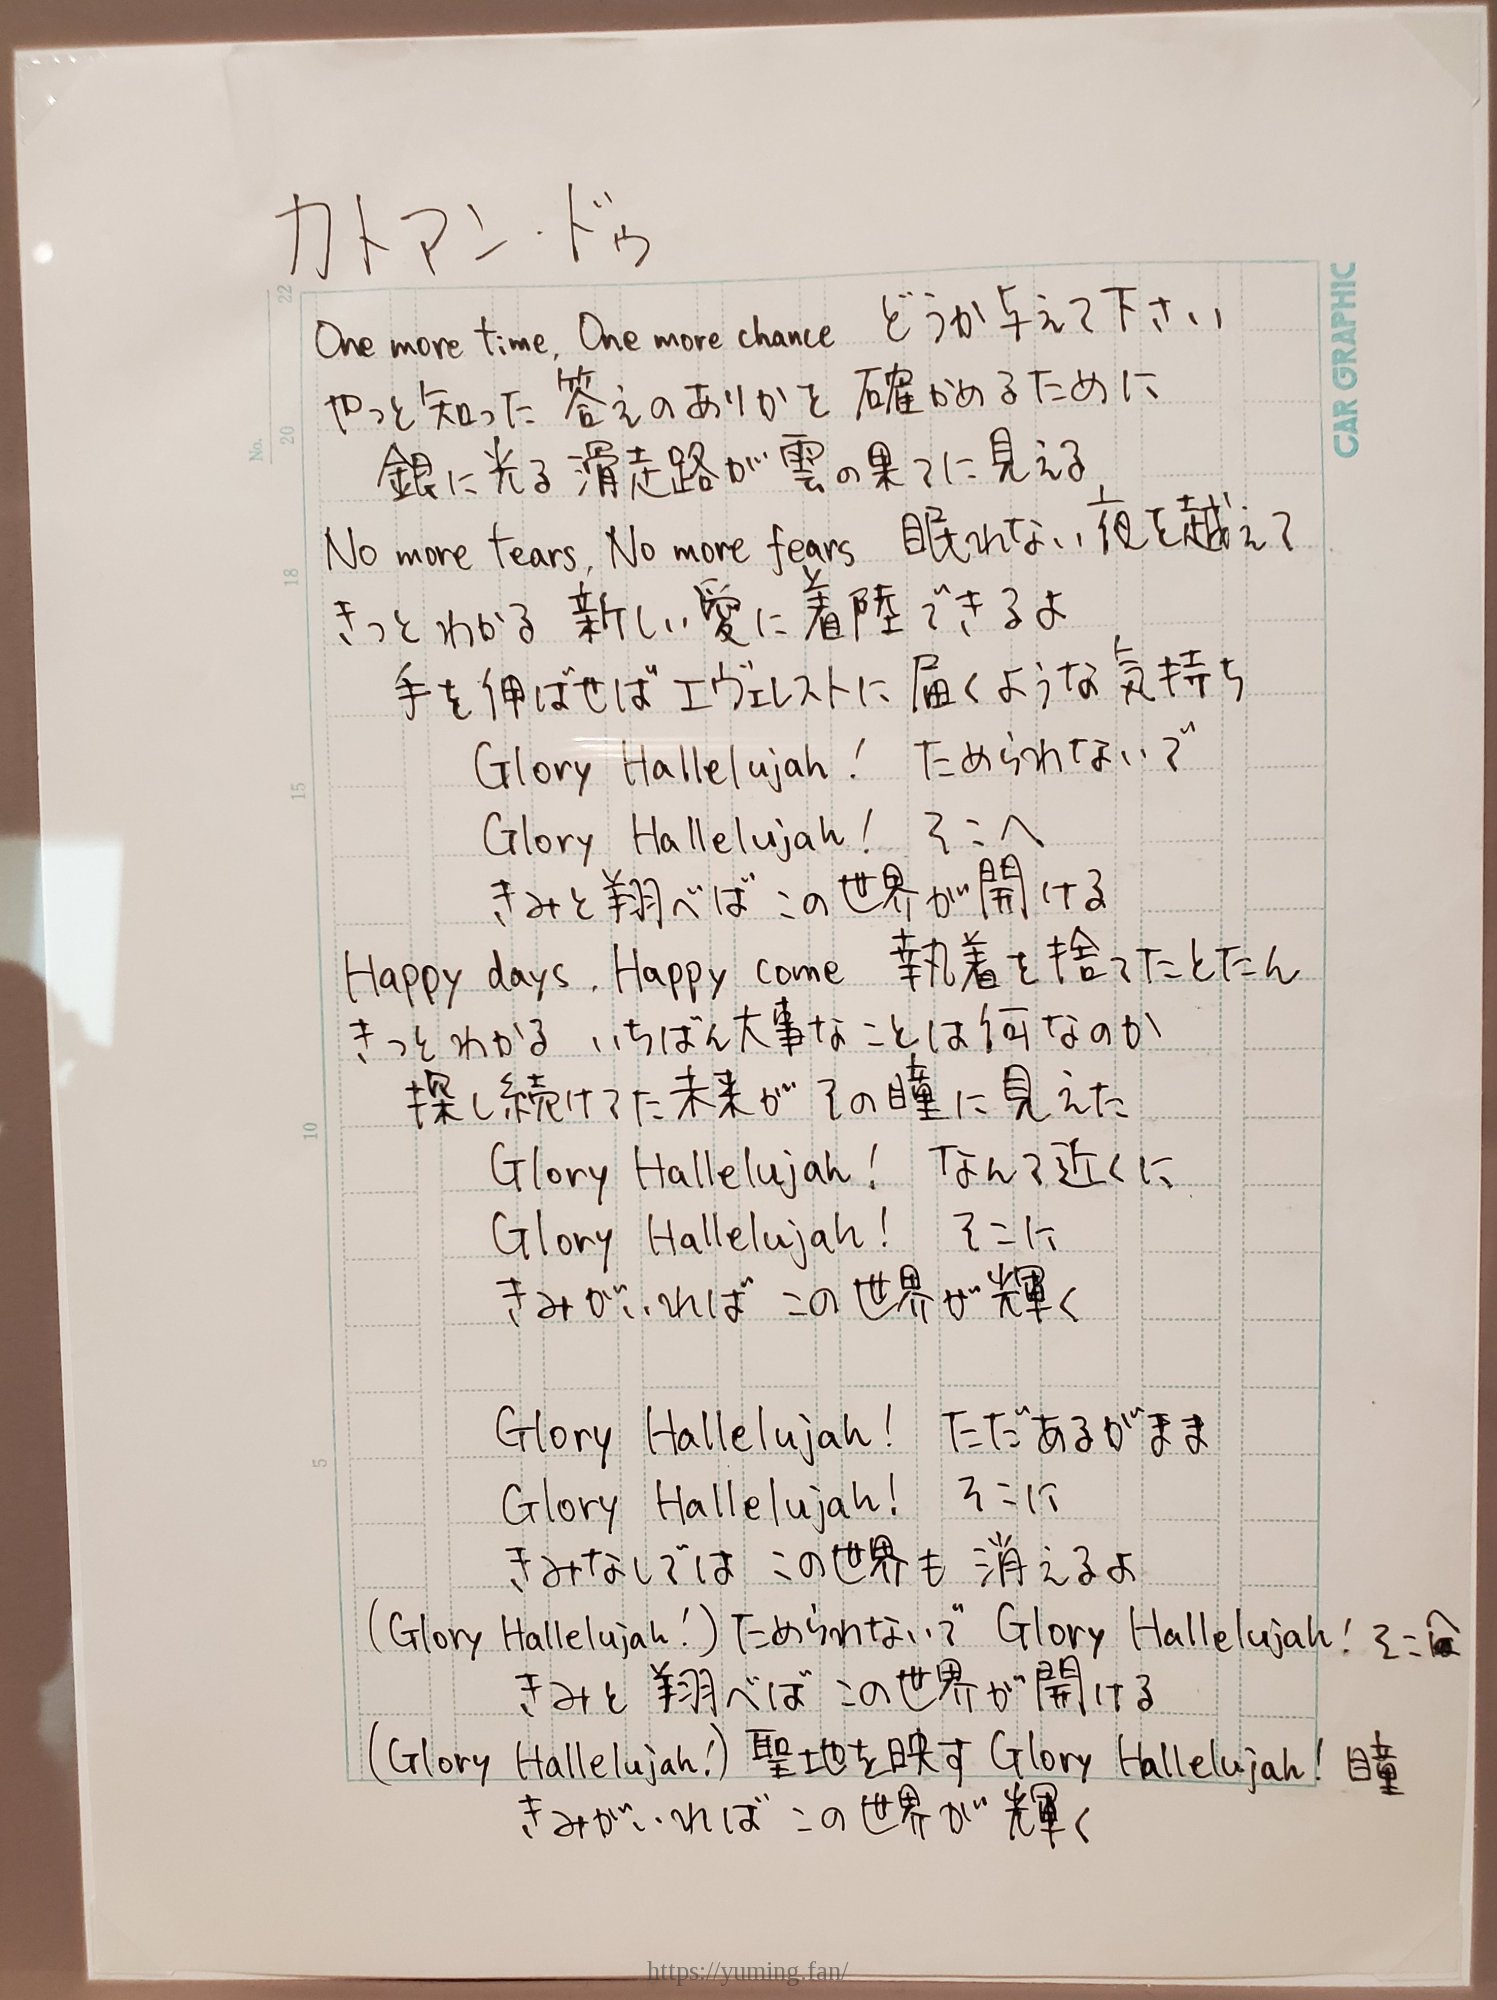 カトマン・ドゥ
CAR GRAPHIC
No.
22
One more time, One more chance どうか与えて下さい
やっと知った 答えのありかを 確かめるために
20
銀に光る 滑走路が 雲の果てに見える
No more tears, No more fears 眠れない夜を越えて
18
きっとわかる 新しい愛に着陸できるよ
手を伸ばせば エヴェレストに 届くような気持ち
Glory Hallelujah! ためられないで
15
Glory Hallelujah! そこへ
きみと翔べば この世界が開ける
Happy days, Happy come 執着を捨てたとたん
きっとわかる いちばん大事なことは何なのか
探し続けてた未来が その瞳に見えた
10
Glory Hallelujah! なんて近くに
Glory Hallelujah! そこに
きみがいれば この世界が輝く
Glory Hallelujah! ただあるがまま
5
Glory Hallelujah! そこに
きみなしでは この世界も 消えるよ
(Glory Hallelujah!) ためられないで Glory Hallelujah! そこへ
きみと 翔べば この世界が開ける
(Glory Hallelujah!) 聖地を映す Glory Hallelujah! 瞳
きみがいれば この世界が輝く
https://yuming.fan/